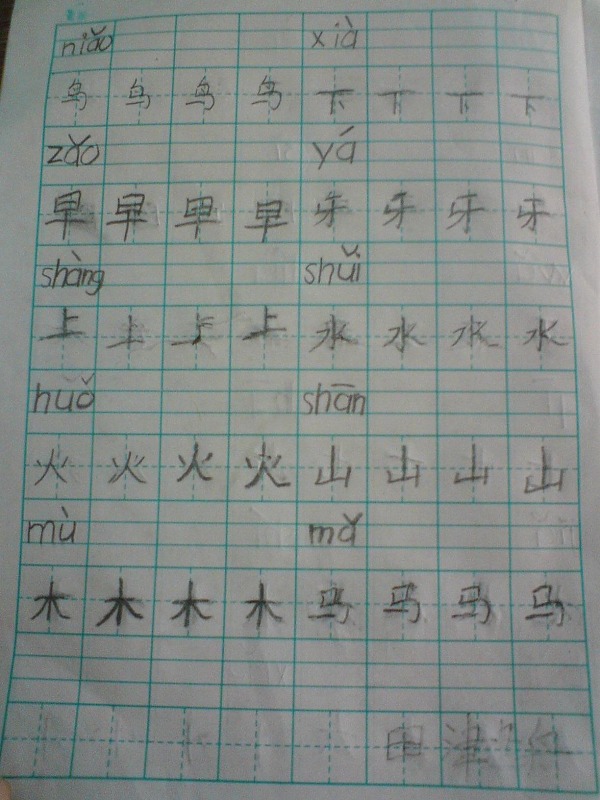 niǎo xià
鸟 鸟 鸟 鸟 下 下 下 下
zǎo yá
早 早 早 早 牙 牙 牙 牙
shàng shuǐ
上 上 上 上 水 水 水 水
huǒ shān
火 火 火 火 山 山 山 山
mù mǎ
木 木 木 木 马 马 马 马
田